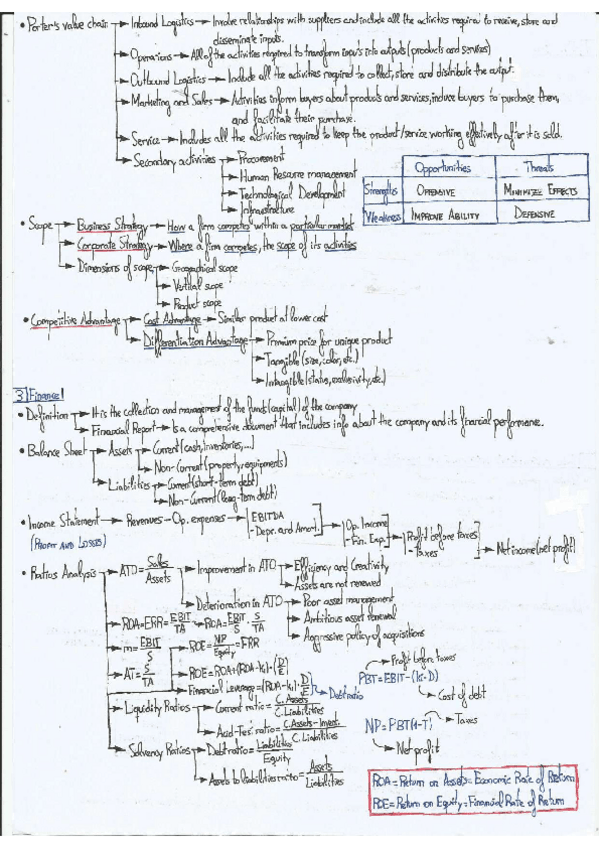 • Porter's value chain → Inbound Logistics → Involve relationships with suppliers and include all the activities required to receive, store and
disseminate inputs.
→ Operations → All of the activities required to transform inputs into outputs (products and services)
→ Outbound Logistics → Include all the activities required to collect, store and distribute the output.
→ Marketing and Sales → Activities inform buyers about products and services, induce buyers to purchase them,
and facilitate their purchase.
→ Service → Includes all the activities required to keep the product/service working effectively after it is sold.
→ Secondary activities → Procurement
→ Human Resource management
→ Technological Development
→ Infrastructure
Opportunities Threats
Strengths OFFENSIVE MINIMIZE EFFECTS
Weakness IMPROVE ABILITY DEFENSIVE
• Scope → Business Strategy → How a firm competes within a particular market
→ Corporate Strategy → Where a firm competes, the scope of its activities
→ Dimensions of scope → Geographical scope
→ Vertical scope
→ Product scope
• Competitive Advantage → Cost Advantage → Similar product at lower cost
→ Differentiation Advantage → Premium price for unique product
→ Tangible (size, color, etc.)
→ Intangible (status, exclusivity, etc.)
3] Finance
• Definition → It is the collection and management of the funds (capital) of the company
→ Financial Report → Is a comprehensive document that includes info about the company and its financial performance.
• Balance Sheet → Assets → Current (cash, inventories,...)
→ Non-Current (property, equipments)
→ Liabilities → Current (short-term debt)
→ Non-Current (long-term debt)
• Income Statement → Revenues - Op. expenses → [EBITDA - Depr. and Amort.] → [Op. Income - Fin. Exp.] → [Profit before taxes - Taxes] → Net income (net profit)
(PROFIT AND LOSSES)
• Ratios Analysis → ATO = Sales/Assets → Improvement in ATO → Efficiency and Creativity
→ Assets are not renewed
→ Deterioration in ATO → Poor asset management
→ Ambitious asset renewal
→ Aggressive policy of acquisitions
→ ROA = ERR = EBIT/TA → ROA = EBIT/S · S/TA
→ m = EBIT/S
→ ROE = NP/Equity = FRR
→ AT = S/TA
→ ROE = ROA + (ROA - k) · (D/E)
→ Financial Leverage = (ROA - k) · D/E → Debt ratio
→ Profit before taxes
PBT = EBIT - (k · D)
→ Cost of debt
→ Liquidity Ratios → Current ratio = C. Assets/C. Liabilities
→ Acid-Test ratio = C. Assets - Invent./C. Liabilities
NP = PBT(1-T) → Taxes
→ Net profit
→ Solvency Ratios → Debt ratio = Liabilities/Equity
→ Assets to liabilities ratio = Assets/Liabilities
ROA = Return on Assets = Economic Rate of Return
ROE = Return on Equity = Financial Rate of Return